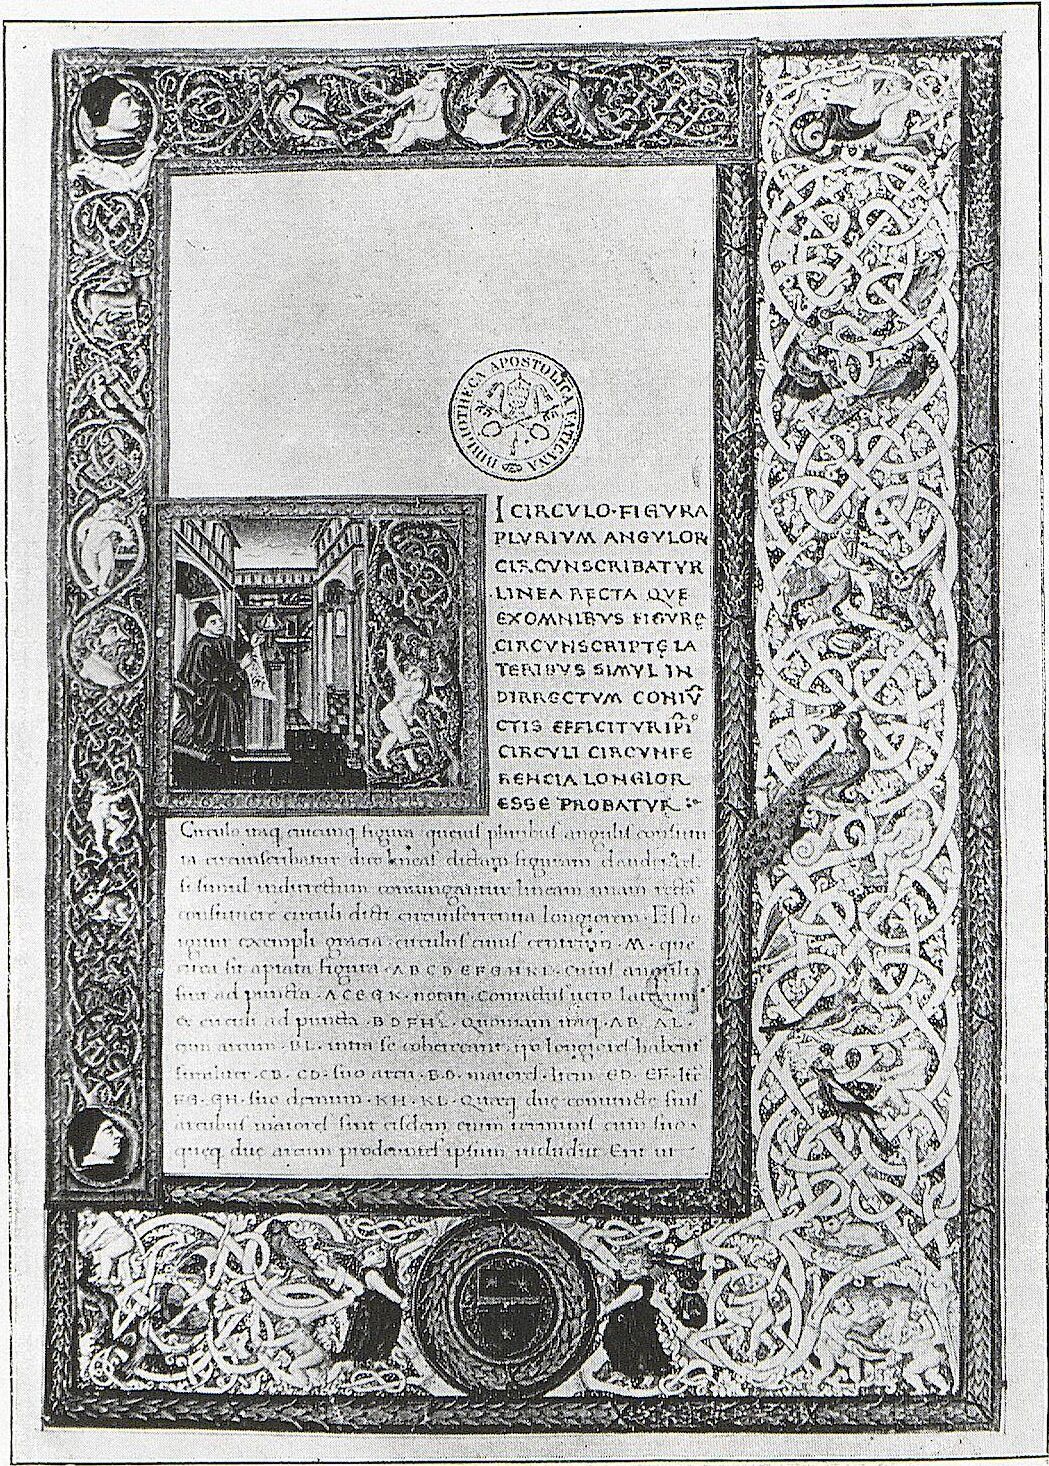 BIBLIOTHECA APOSTOLICA VATICANA
I CIRCVLO·FIGVRA
PLVRIVM ANGVLOR
CIRCVNSCRIBATVR
LINEA RECTA QVE
EX OMNIBVS FIGVRĘ
CIRCVNSCRIPTĘ LA
TERIBVS SIMVL IN
DIRRECTVM CONIV̄
CTIS EFFICITVR IP̄I°
CIRCVLI CIRCVNFE
RENCIA LONGIOR
ESSE PROBATVR
Circulo itaq cuicunq figura queuis pluribus angulis constituta
ta circunscribatur dico lineas dictam figuram
si simul indirectum coniungantur lineam unam rectā
constituere circuli dicti circunferrentia longiorem · Esto
igitur exempli gracia circulus cuius centrum · M · que
circa sit aptata figura · A B C D E F G H K L · cuius anguli
sint ad puncta · A C E G K · notati · contactus uero laterum
& circuli ad puncta · B D F H L · Quoniam itaq · AB · AL ·
cum arcum · BL · intra se coherceant · ipso longiores habent
similiter · CB · CD · suo arcu · B D · maiores · Item · ED · EF · ite
FG · GH · suo demum · KH · KL · Quęq duę coniunctę suis
arcubus maiores sint eisdem cum terminis cum suo
queq duę arcum prodeuntes ipsum includunt Erit ut